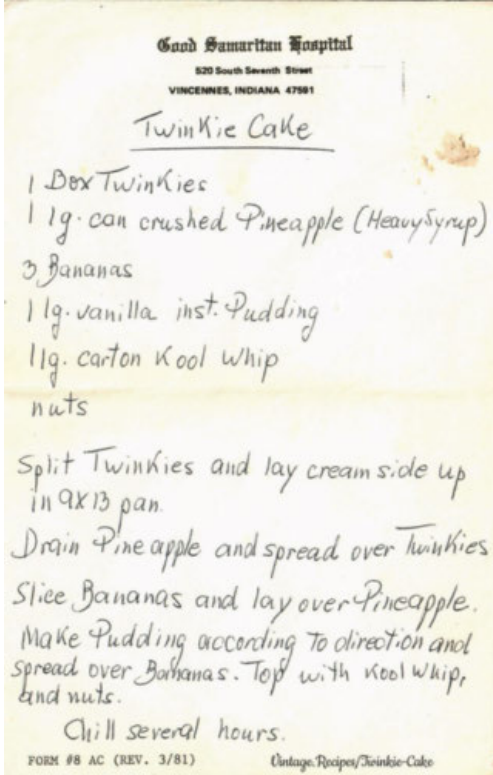 Good Samaritan Hospital
520 South Seventh Street
VINCENNES, INDIANA 47591
Twinkie Cake
1 Box Twinkies
1 lg. can crushed Pineapple (Heavy Syrup)
3 Bananas
1 lg. vanilla inst. Pudding
1 lg. carton Kool Whip
nuts
Split Twinkies and lay cream side up
in 9X13 pan.
Drain Pineapple and spread over Twinkies
Slice Bananas and lay over Pineapple.
Make Pudding according to direction and
spread over Bananas. Top with Kool Whip,
and nuts.
Chill several hours.
FORM #8 AC (REV. 3/81) Vintage.Recipes/Twinkie-Cake